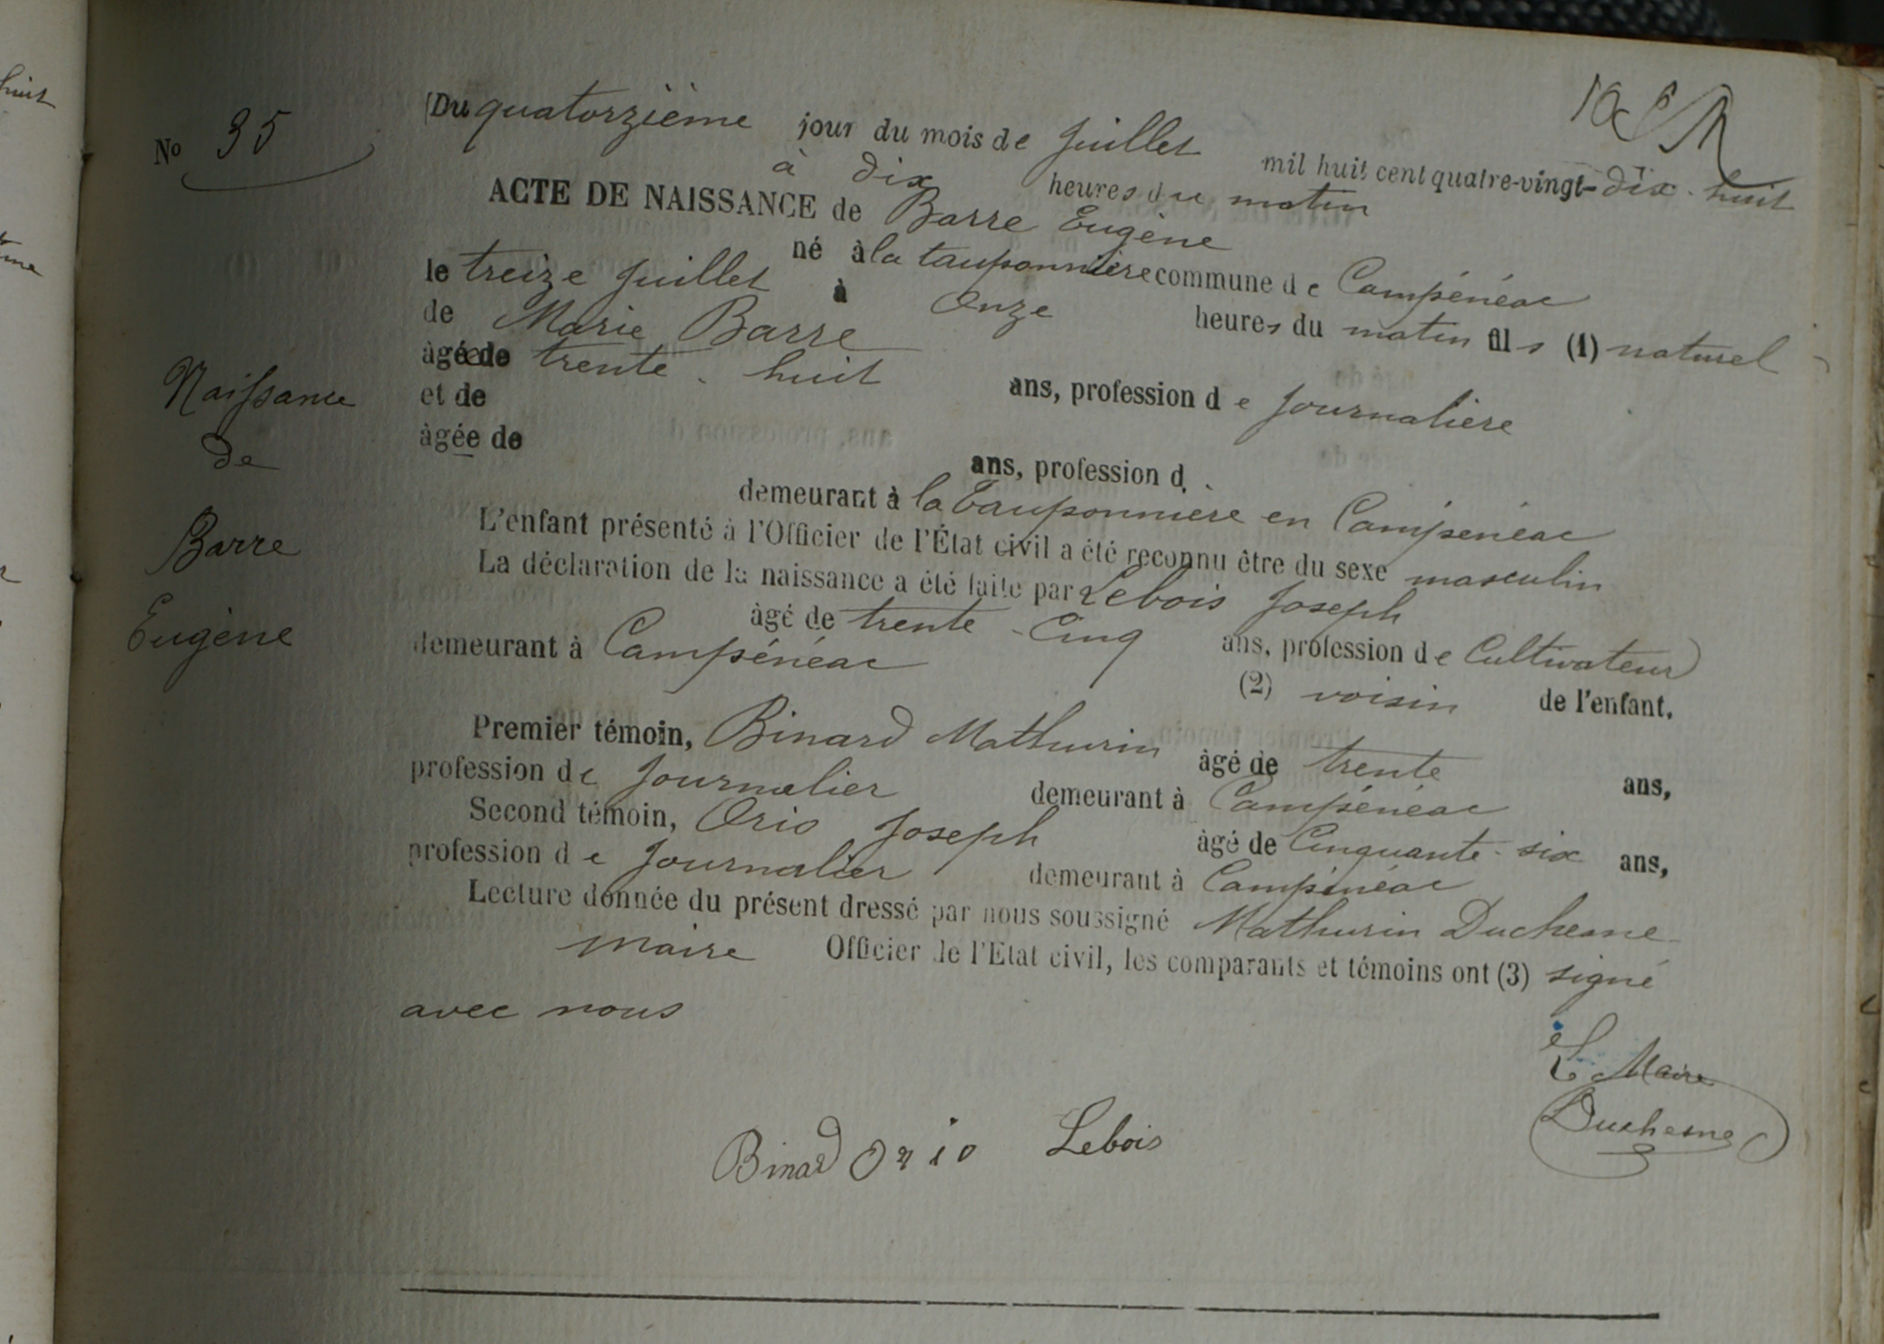 huit
No 35
(Du quatorzième jour du mois de Juillet mil huit cent quatre-vingt-dix-huit
à dix heures du matin
ACTE DE NAISSANCE de Barre Eugène
né à la tauponnière commune de Campénéac
le treize Juillet à Onze heures du matin fils (1) naturel
de Marie Barre
âgée de trente-huit ans, profession de Journalière
et de
âgée de ans, profession d
demeurant à la Tauponnière en Campénéac
L'enfant présenté à l'Officier de l'État civil a été reconnu être du sexe masculin
La déclaration de la naissance a été faite par Lebois Joseph
âgé de trente-Cinq ans, profession de Cultivateur
demeurant à Campénéac (2) voisin de l'enfant.
Premier témoin, Binard Mathurin âgé de trente ans,
profession de Journalier demeurant à Campénéac
Second témoin, Orio Joseph âgé de Cinquante-six ans,
profession de Journalier demeurant à Campénéac
Lecture donnée du présent dressé par nous soussigné Mathurin Duchesne
maire Officier de l'Etat civil, les comparants et témoins ont (3) signé
avec nous
Naissance
de
Barre
Eugène
Le Maire
Duchesne
Binard Orio Lebois